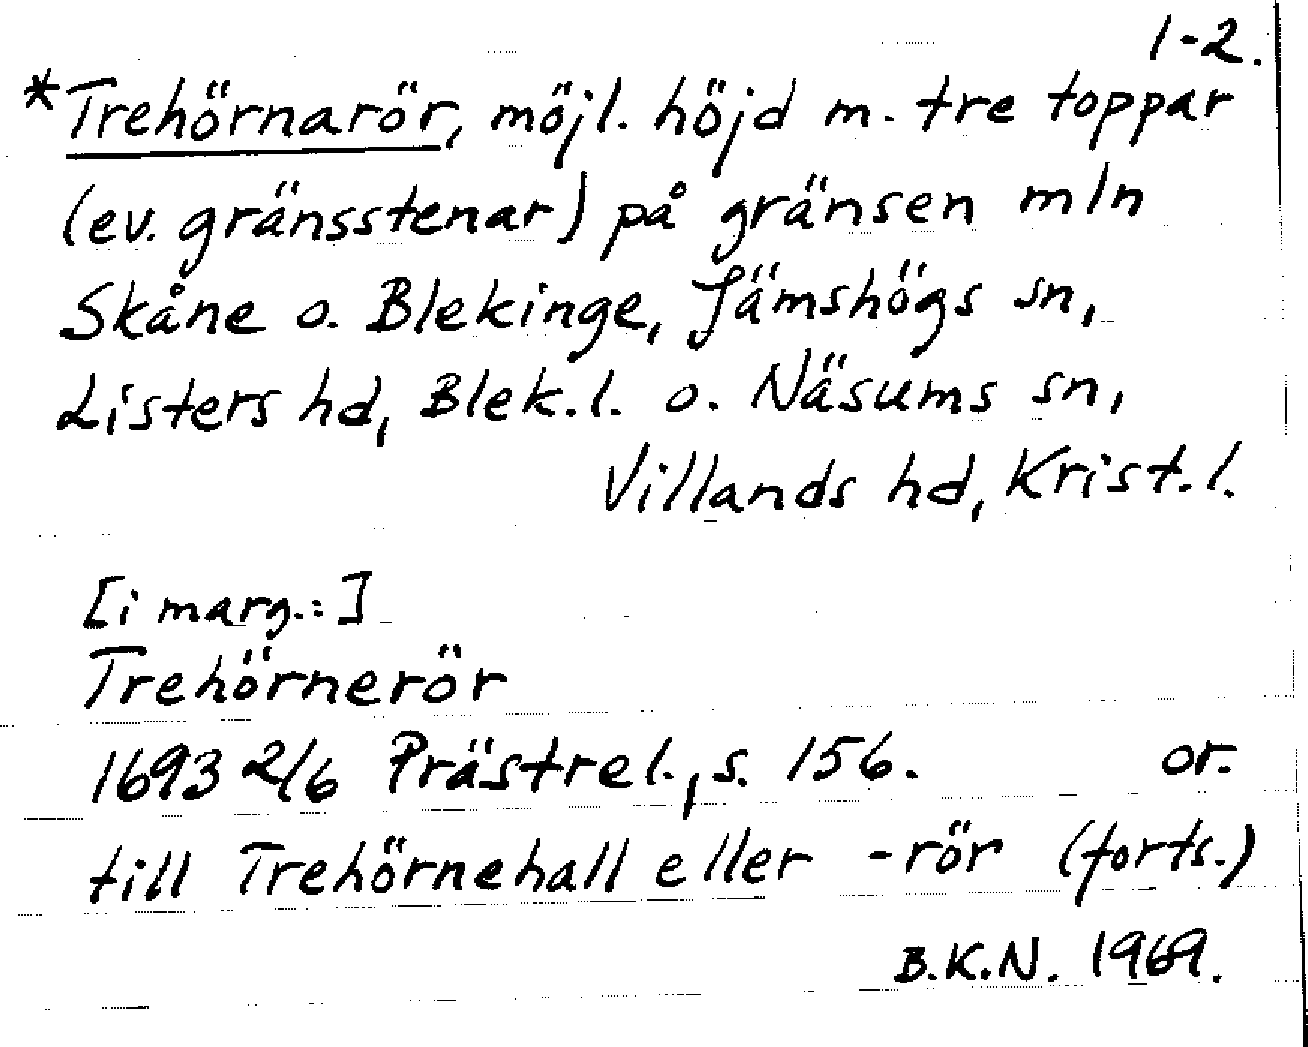 1-2.
*Trehörnarör, möjl. höjd m. tre toppar
(ev. gränsstenar) på gränsen mln
Skåne o. Blekinge, Jämshögs sn,
Listers hd, Blek.l. o. Näsums sn,
Villands hd, Krist.l.
[i marg.:]
Trehörnerör
1693 2/6 Prästrel., s. 156. or.
till Trehörnehall eller -rör (forts.)
B.K.N. 1969.